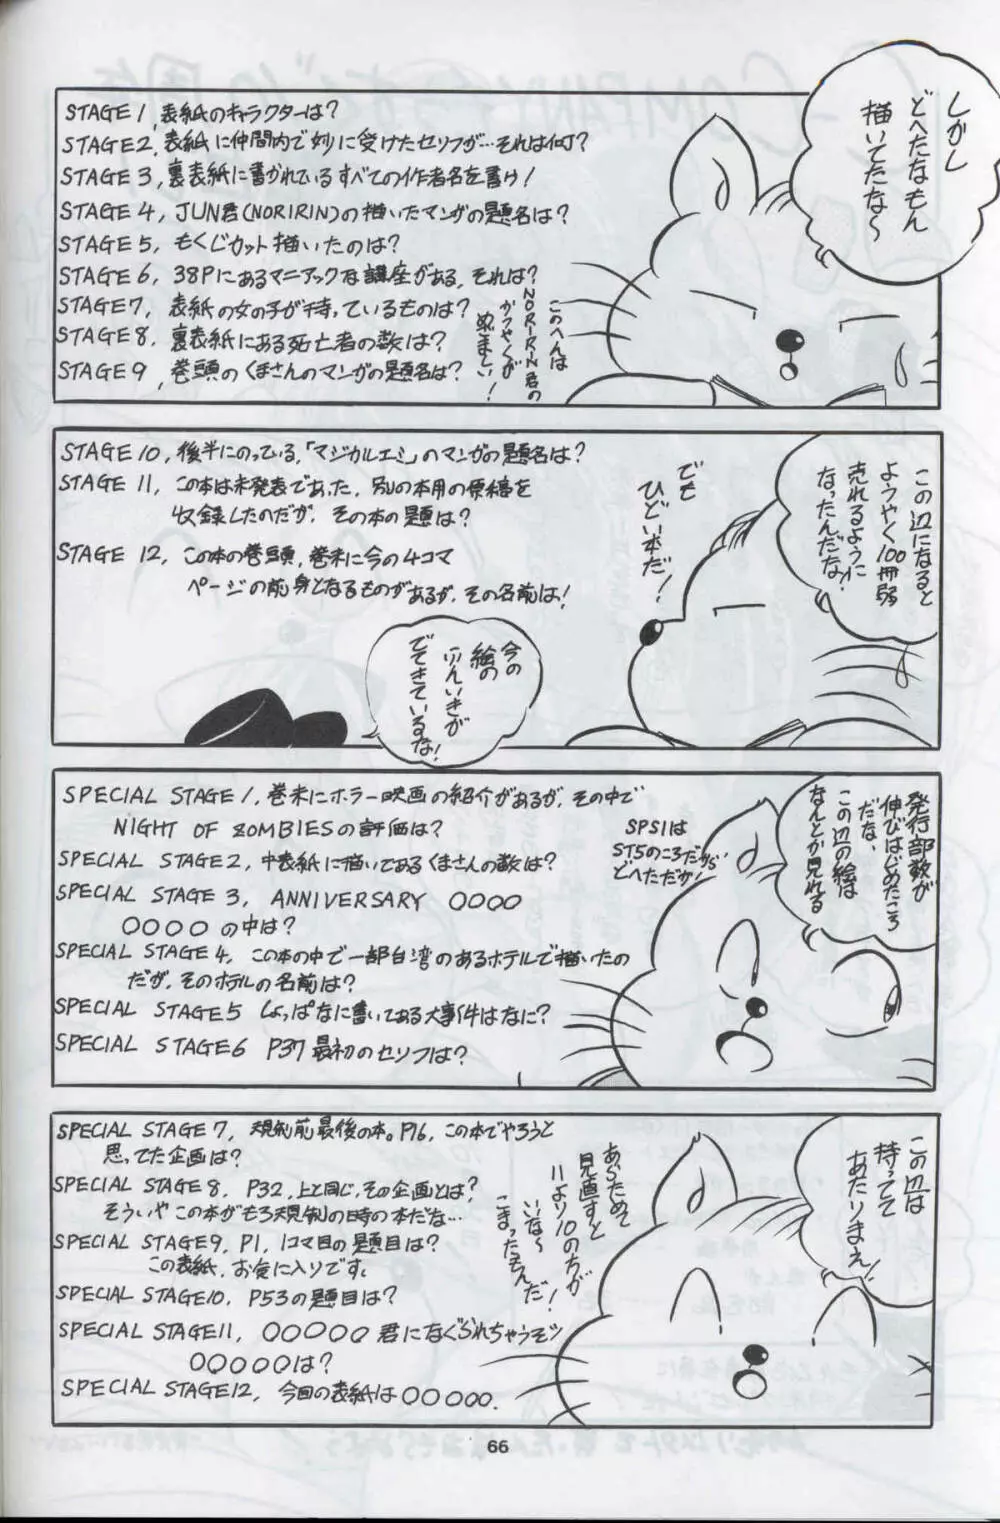 しかし
どへたなもん
描いてたな〜
STAGE 1, 表紙のキャラクターは?
STAGE 2, 表紙に仲間内で妙に受けたセリフが…それは何?
STAGE 3, 裏表紙に書かれているすべての作者名を書け!
STAGE 4, JUN君(NORIRIN)の描いたマンガの題名は?
STAGE 5, もくじカット描いたのは?
STAGE 6, 38Pにあるマニアックな講座がある, それは?
STAGE 7, 表紙の女の子が持っているものは?
STAGE 8, 裏表紙にある死亡者の数は?
STAGE 9, 巻頭のくまさんのマンガの題名は?
このへんは
NORIRIN君の
かつやくが
めざましい!
この辺になると
ようやく100冊弱
売れるように
なったんだな!
でも
ひどい本だ!
STAGE 10, 後半にのっている,「マジカルエミ」のマンガの題名は?
STAGE 11, この本は未発表であった, 別の本用の原稿を
収録したのだが, その本の題は?
STAGE 12, この本の巻頭, 巻末に今の4コマ
ページの前身となるものがあるが, その名前は!
今の
絵の
ふんいきが
でてきているな!
発行部数が
伸びはじめたころ
だな,
この辺の絵は
なんとか見れる
SPECIAL STAGE 1, 巻末にホラー映画の紹介があるが, その中で
NIGHT OF ZOMBIESの評価は?
SPS1は
ST5のころだから
どへただが!
SPECIAL STAGE 2, 中表紙に描いてあるくまさんの数は?
SPECIAL STAGE 3, ANNIVERSARY ○○○○
○○○○の中は?
SPECIAL STAGE 4, この本の中で一部台湾のあるホテルで描いたの
だが, そのホテルの名前は?
SPECIAL STAGE 5 しょっぱなに書いてある大事件はなに?
SPECIAL STAGE 6 P37最初のセリフは?
この辺は
持ってて
あたりまえ!
SPECIAL STAGE 7, 規制前最後の本。P16, この本でやろうと
思ってた企画は?
SPECIAL STAGE 8, P32, 上と同じ, その企画とは?
そういやこの本がもろ規制の時の本だな…
SPECIAL STAGE 9, P1, 1コマ目の題目は?
この表紙, お気に入りです。
SPECIAL STAGE 10, P53の題目は?
SPECIAL STAGE 11, ○○○○○君になぐられちゃうぞッ
○○○○○は?
SPECIAL STAGE 12, 今回の表紙は○○○○○.
あらためて
見直すと
11より10のちが
いいな〜
こまったもんだ!
66